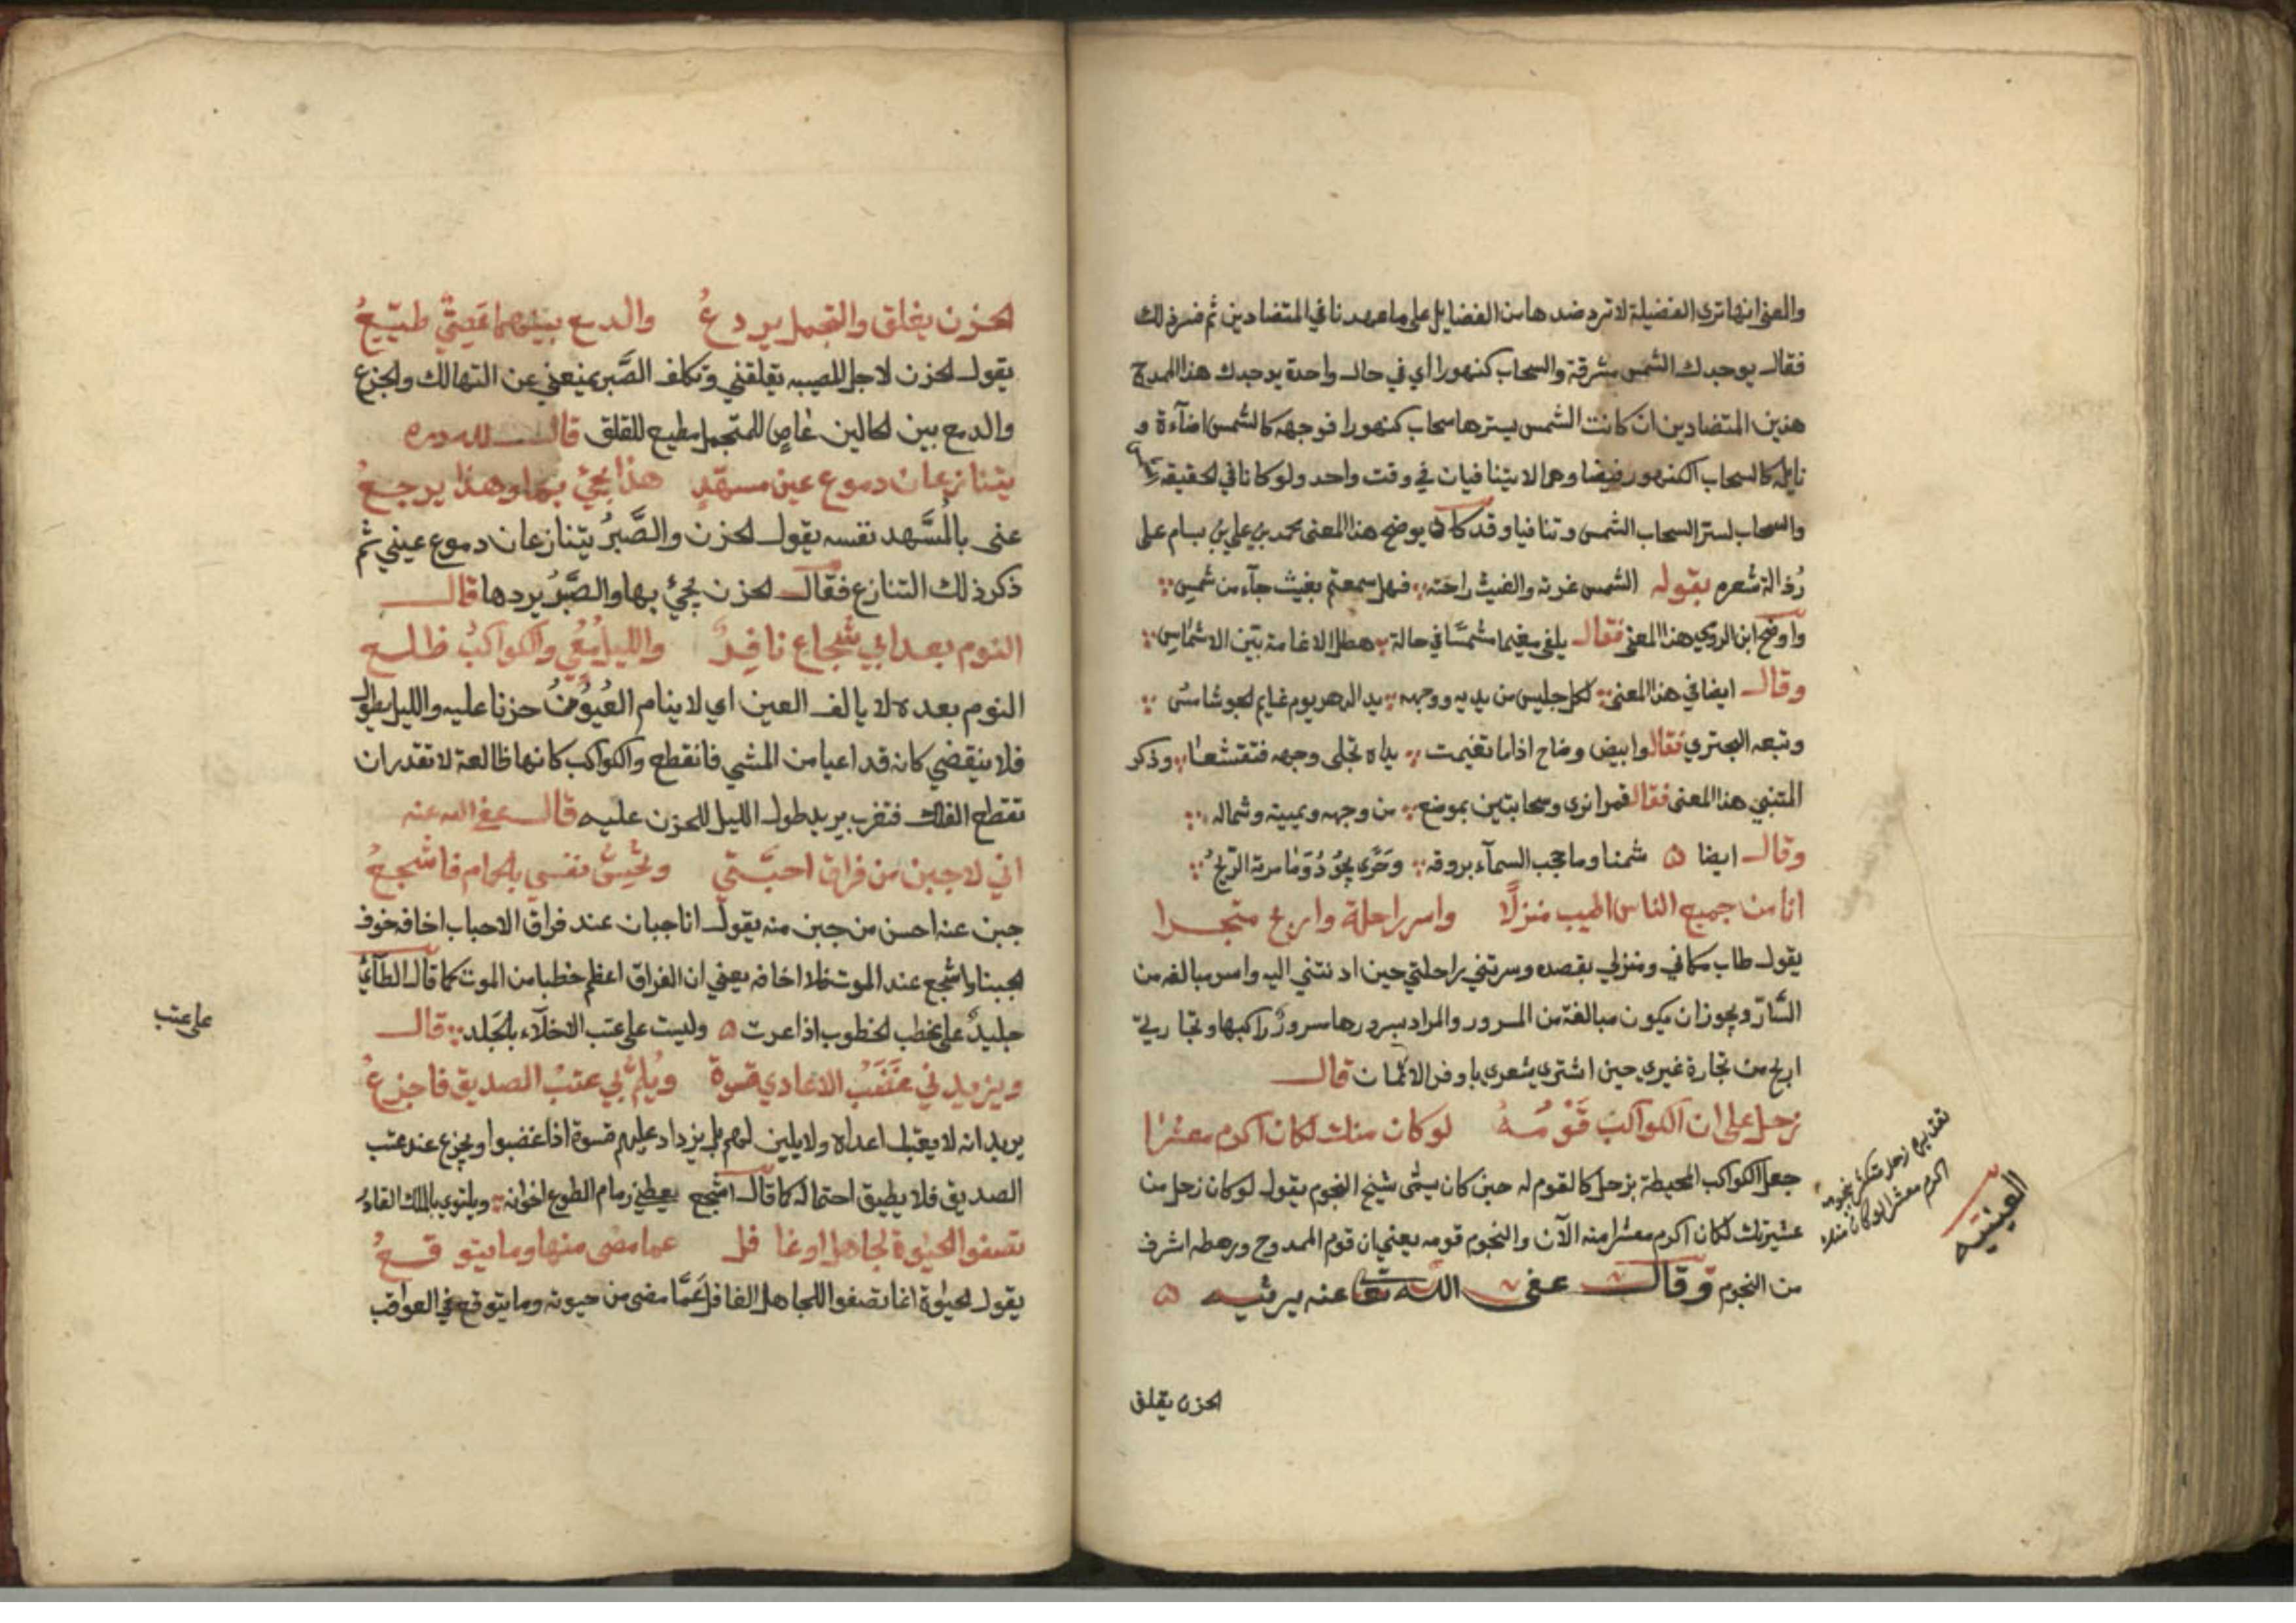 والمعنى انها ترى الفضيلة لا ترد ضدها من الفضايل على ما عهدنا في المتضادين ثم فسر ذلك
فقال يوحدك الشمس مشرقة والسحاب كنهورا اي في حال واحدة يوحدك هذا الممدوح
هذين المتضادين ان كانت الشمس يسترها سحاب كنهورا فوجهه كالشمس اضآءة و
نايله كالسحاب الكنهور فيضا وهما لا يتنافيان في وقت واحد ولو كانا في الحقيقة
والسحاب لستر السحاب الشمس وتنافيا وقد كان يوضح هذا المعنى محمد بن علي بن بسام على
رُذالة شعره بقوله الشمس غرته والغيث راحته فهل سمعتم بغيث جآء من شمس
واوضح ابن الرومي هذا المعنى فقال يلقى مغيما مشمسًا في حالة هطل الاغامة بيّن الاشماس
وقال ايضا في هذا المعنى لكل جليس من يديه ووجهه يد الدهر يوم غايم الجو شامس
وتبعه البحتري فقال وابيض وضاح اذا ما تغيمت يداه تجلى وجهه فتقشعا وذكر
المتنبي هذا المعنى فقال قمرا نرى وسحابتين بموضع من وجهه ويمينه وشماله
وقال ايضا شمنا وما حجب السمآء بروقه وحَرًى يجُودُ وَمَا مرته الريحُ
انا من جميع الناس اطيب منزلًا واسر راحلة واربح متجرا
يقول طاب مكاني ومنزلي بقصده وسرتني راحلتي حين ادنتني اليه واسر مبالغه من
السّارّ ويجوز ان يكون مبالغة من السرور والمراد بسرورها سرورُ راكبها وتجارتي
اربح من تجارة غيري حين اشترى شعري باوفر الاثمان قال
زحل على ان الكواكبَ قَوْمُهُ لو كان منك لكان اكرم معشرا
جعل الكواكب المحيطة بزحل كالقوم له حين كان يسمّى شيخ النجوم يقول لو كان زحل من
عشيرتك لكان اكرم معشرا منه الآن والنجوم قومه يعني ان قوم الممدوح ورهطه اشرف
من النجوم وقال عفى الله تعا عنه يرثيه
الحزن يقلق
العينيه
اكرم معشرا لو كان منك
الحزن يقلق والتجمل يردعُ والدمع بينهما عَصِيّ طيّعُ
يقول الحزن لاجل المصيبه يقلقني وتكلف الصَّبر يمنعني عن التهالك والجزع
والدمع بين الحالين عَاصٍ للمتجمل مطيع للقلق قال لله دره
يتنازعان دموع عين مسهّدٍ هذا يجئ بها وهذا يرجعُ
عنى بالمُسَّهد نفسه يقول الحزن والصَّبرُ يتنازعان دموع عيني ثم
ذكر ذلك التنازع فقال الحزن يجئ بها والصَّبرُ يردها قال
النوم بعد ابي شجاع نافرٌ والليل مُعْيٍ والكواكبُ ظلع
النوم بعده لا يالف العين اي لا ينام العُيُونُ حزنا عليه والليل يطول
فلا ينقضي كانه قد اعيا من المشي فانقطع والكواكب كانها ظالعة لا تقدر ان
تقطع الفلك فتغرب يريد طول الليل للحزن عليه قال عفى الله عنه
اني لاجبن من فراق احبّتي وتُحِسُّ نفسي بالحمام فاشجعُ
جبن عنه احسن من جبن منه يقول انا جبان عند فراق الاحباب اخافه خوف
الجبنا واشجع عند الموت فلا اخافه يعني ان الفراق اعظم خطبا من الموت كما قال الطآئي
جليدٌ على خطب الخطوب اذا عرت وليست على عتب الاخلآء بالجَلد قال
ويزيدني غَضَبُ الاعادي قسوة ويُلمّ بي عتبُ الصديق فاجزعُ
يريد انه لا يعتب اعداه ولا يلين لهم بل يزداد عليهم قسوة اذا غضبوا ويجزع عند عتب
الصديق فلا يطيق احتماله كما قال اشجع يعطي زمام الطوع اخوانه ويلتوي بالملك القادر
تصفو الحيوة لجاهل او غافل عما مضى منها وما يتوقعُ
يقول الحيوة انما تصفوا للجاهل الغافل عَمَّا مضى من حيوته وما يتوقع في العواقب
على عتب